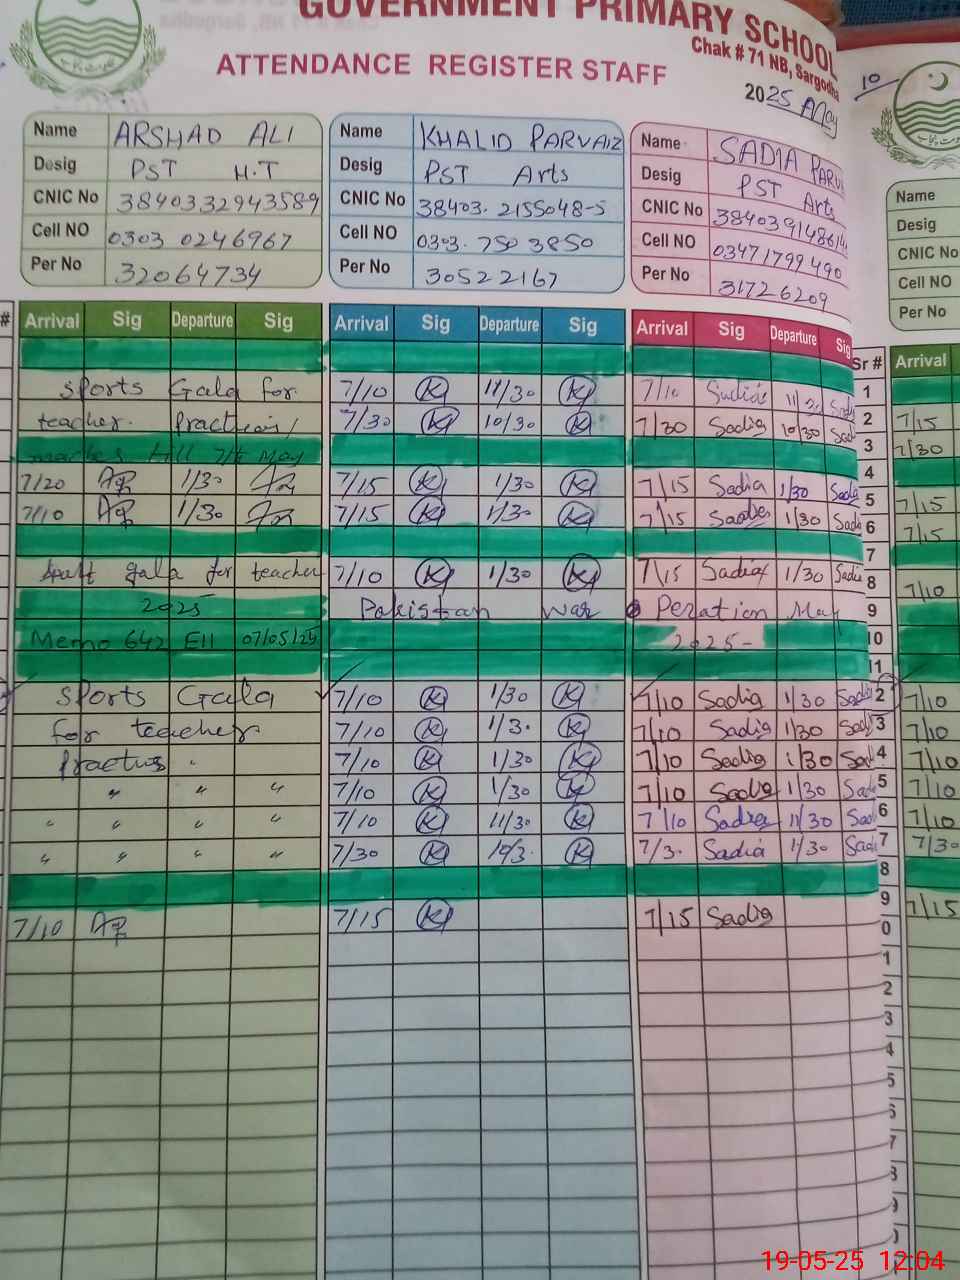 GOVERNMENT PRIMARY SCHOOL
Chak # 71 NB, Sargodha
ATTENDANCE REGISTER STAFF
2025 May
10
Name ARSHAD ALI Name KHALID PARVAIZ Name SADIA
Desig PST H.T Desig PST Arts Desig PST Arts
CNIC No 3840332943589 CNIC No 38403.2155048-5 CNIC No
Cell NO 0303 0246967 Cell NO 0303.750 3850 Cell NO 03471799490
Per No 32064734 Per No 30522167 Per No 31726209
Name
Desig
CNIC No
Cell NO
Per No
# Arrival Sig Departure Sig Arrival Sig Departure Sig Arrival Sig Departure Sig Sr # Arrival
1
sports Gala for 7/10 K 11/30 K 7/10 Sadia 11/30 Sadi 2 7/15
teacher. 7/30 K 10/30 K 7/30 Sadia 10/30 Sad 3 7/30
till May 4
7/20 1/30 7/15 K 1/30 K 7/15 Sadia 1/30 Sadia 5 7/15
7/10 1/30 7/15 K 1/30 K 7/15 Sadia 1/30 Sadi 6 7/15
7
gala for teacher 7/10 K 1/30 K 7/15 Sadia 1/30 Sadi 8 7/10
2025 Pakistan war May 9
Memo 642 EII 07/05/25 2025- 10
11
sports Gala 7/10 K 1/30 K 7/10 Sadia 1/30 Sadi 2 7/10
for teacher 7/10 K 1/3. K 7/10 Sadia 1/30 Sadi 3 7/10
7/10 K 1/30 K 7/10 Sadia 1/30 Sad 4 7/10
" " " 7/10 K 1/30 K 7/10 Sadia 1/30 Sad 5 7/10
" " " " 7/10 K 11/30 K 7/10 Sadia 11/30 Sad 6 7/10
" " " " 7/30 K 10/3. K 7/3. Sadia 1/30 Sad 7 7/30
8
7/10 7/15 K 7/15 Sadia 9 7/15
0
1
2
3
4
5
6
7
8
9
0
19-05-25 12:04